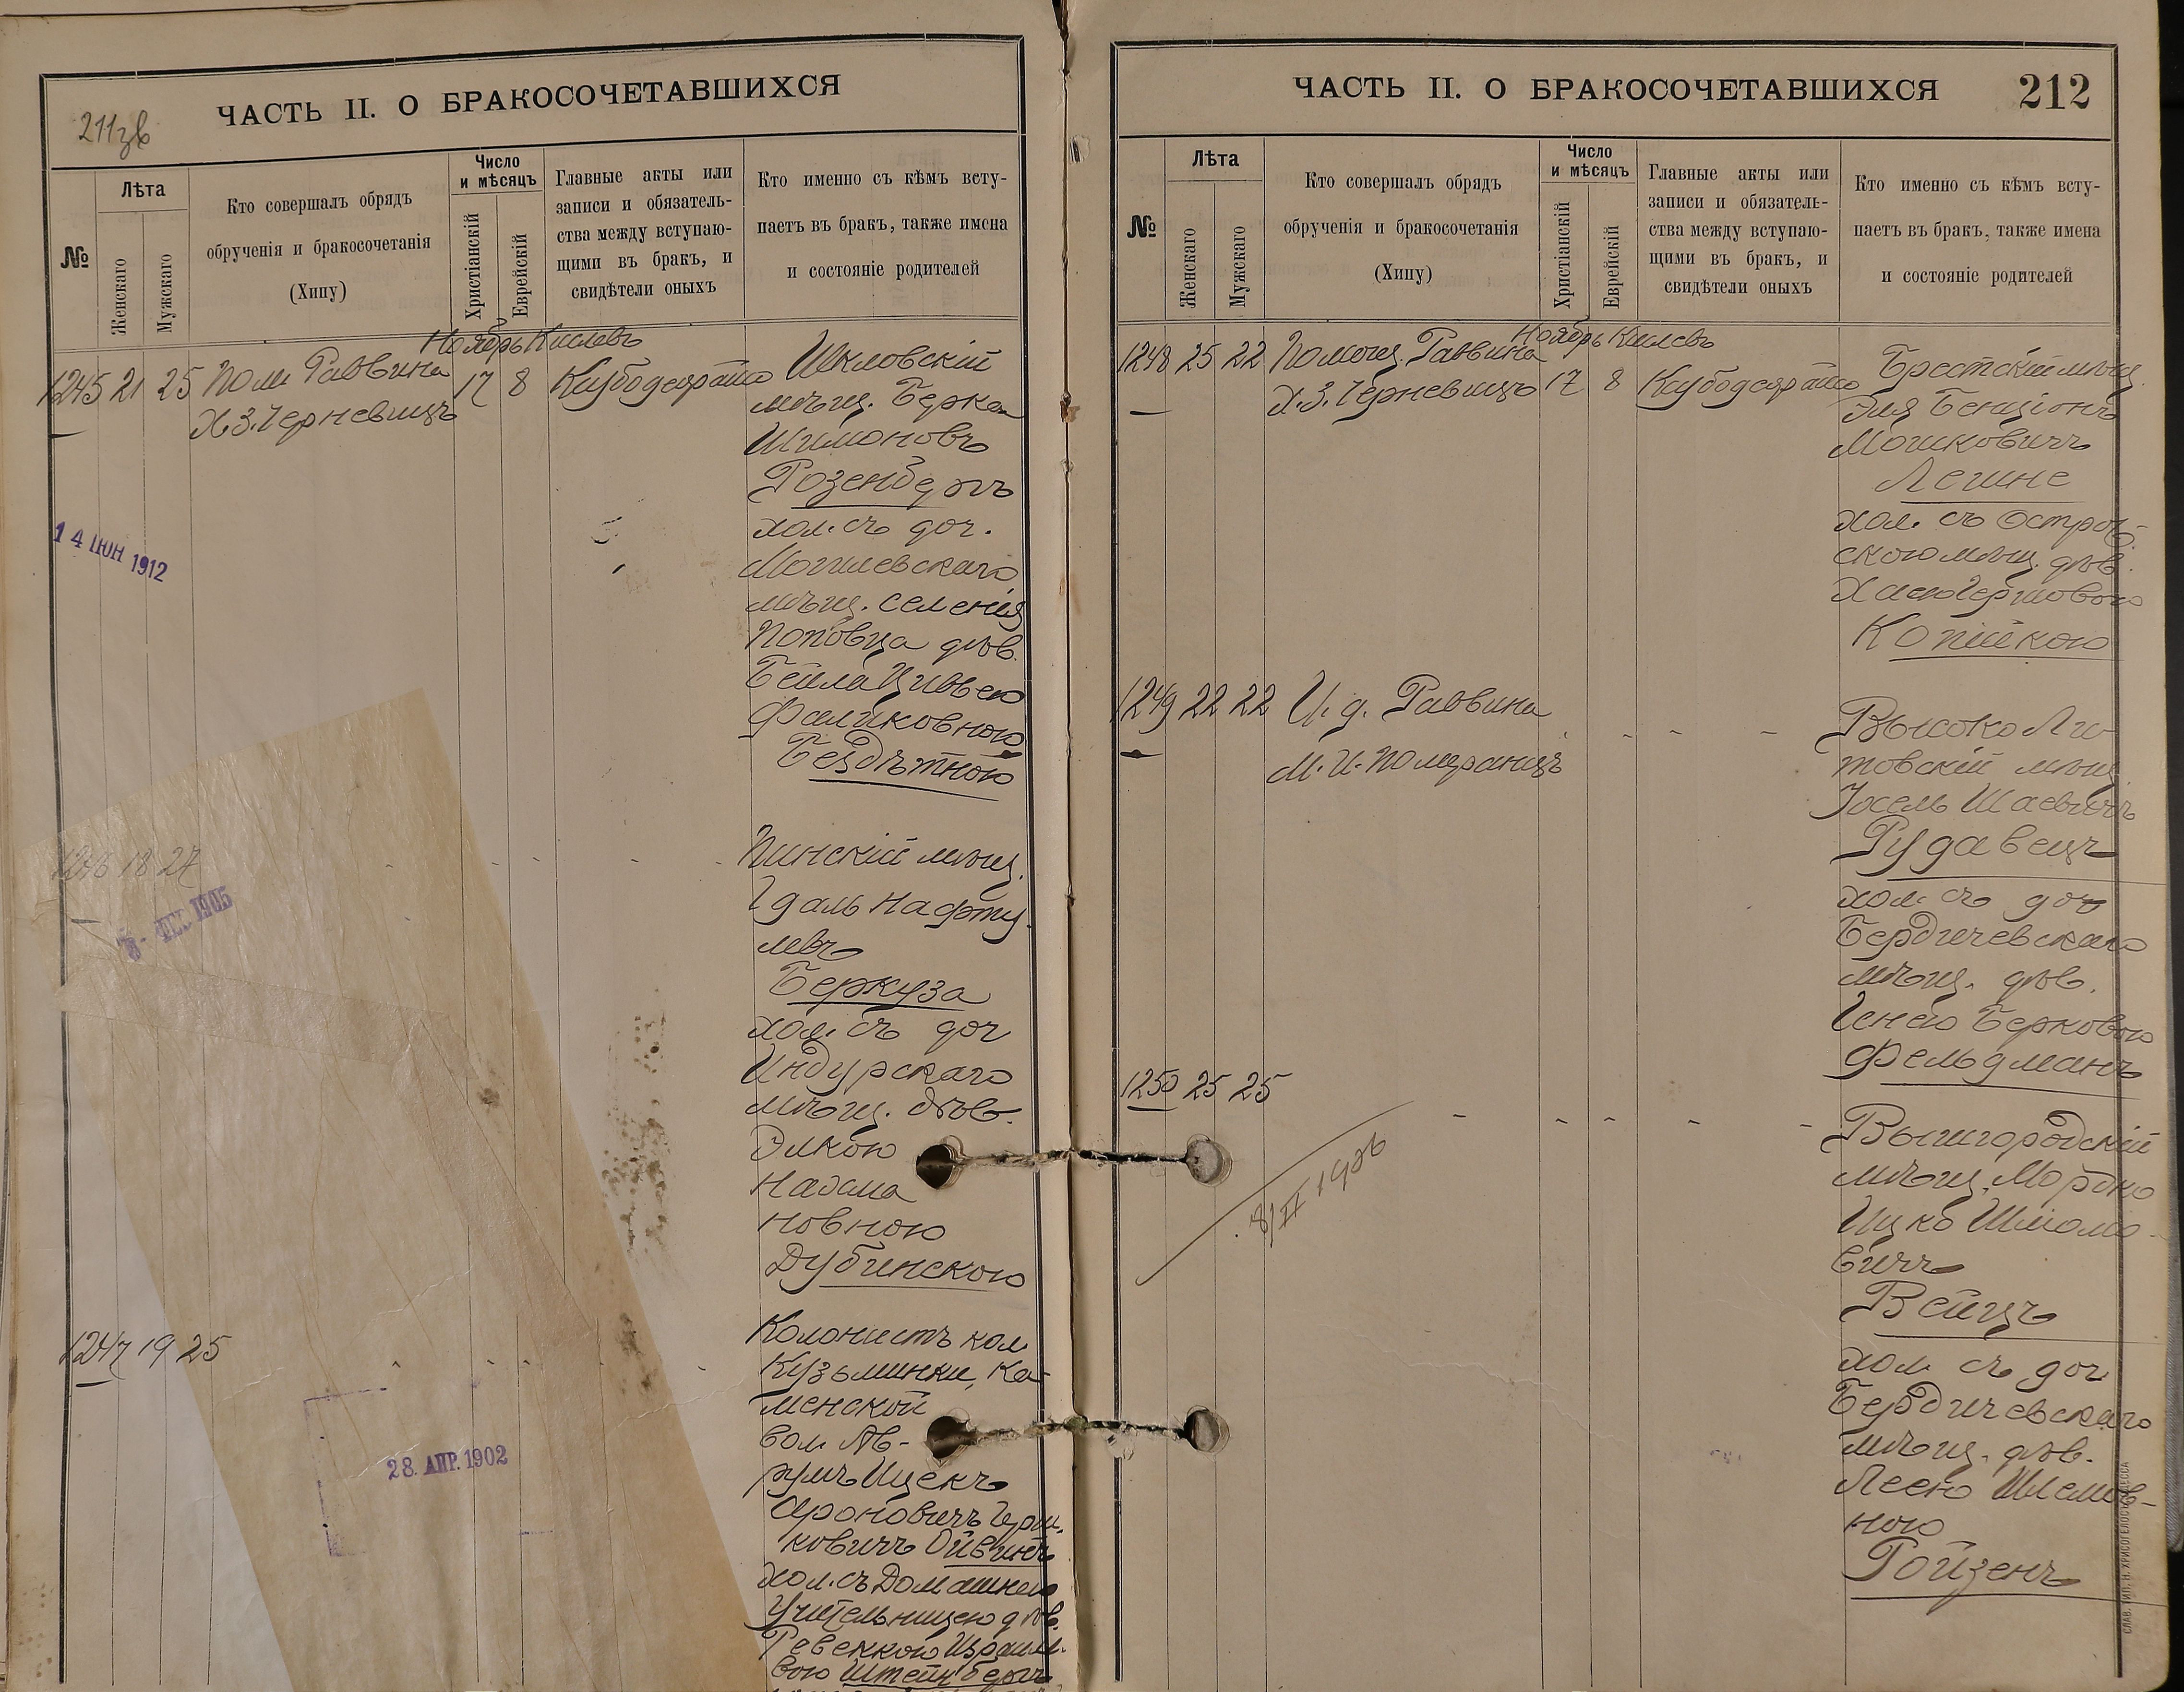 211зв
ЧАСТЬ II. О БРАКОСОЧЕТАВШИХСЯ
№
Лѣта
Женскаго
Мужскаго
Кто совершалъ обрядъ
обрученія и бракосочетанія
(Хипу)
Число
и мѣсяцъ
Христіанскій
Еврейскій
Главные акты или
записи и обязатель-
ства между вступаю-
щими въ бракъ, и
свидѣтели оныхъ
Кто именно съ кѣмъ всту-
паетъ въ бракъ, также имена
и состояніе родителей
Ноябрь Кислевъ
1245 21 25 Пом. Раввина 17 8
Х.З. Черневицъ
Шкловскій
мѣщ. Берка
Шимоновъ
Розенбергъ
хол. съ доч.
Могилевскаго
мѣщ. селенія
дѣв.
Бейла Циввею
Фаликовною
Бездѣтною
14 ІЮН 1912
1246 18 27
ФЕВ 1905
Пинскій мѣщ.
Гдаль Нафту-
левъ
Беркуза
хол. съ доч
Индурскаго
мѣщ. дѣв.
Элкою
Нахма
новною
Дубинскою
1247 19 25
28. АПР. 1902
Колонистъ кол
Кузьминки, Ка-
менской
вол. Ав-
румъ Ицекъ
Ароновичъ Герш-
ковичъ Ойвинъ
хол. съ Домашнею
Учительницею дѣв.
Ревеккою Израиле-
вою Штейнбергъ
ЧАСТЬ II. О БРАКОСОЧЕТАВШИХСЯ
212
№
Лѣта
Женскаго
Мужскаго
Кто совершалъ обрядъ
обрученія и бракосочетанія
(Хипу)
Число
и мѣсяцъ
Христіанскій
Еврейскій
Главные акты или
записи и обязатель-
ства между вступаю-
щими въ бракъ, и
свидѣтели оныхъ
Кто именно съ кѣмъ всту-
паетъ въ бракъ, также имена
и состояніе родителей
Ноябрь Кислевъ
1248 25 22 Помощ. Раввина 17 8
Х.З. Черневицъ
Брестскій мѣщ.
Эля Бенціонъ
Мошковичъ
Лешне
хол. съ Острог-
скою мѣщ. дѣв.
Хаею Гершовою
Копійкою
1249 22 22 И. д. Раввина
М. И. Померанцъ
Высоко Ли-
товскій мѣщ.
Іосель Шаевичъ
Рудавецъ
хол. съ доч
Бердичевскаго
мѣщ. дѣв.
Генею Берковою
Фельдманъ
1250 25 25
8/II 1906
Вышгородскій
мѣщ. Мордко
Ицко Шліомо-
вичъ
Вейцъ
хол съ доч
Бердичевскаго
мѣщ. дѣв.
Леею Шлемов-
ною
Ройзенъ
СЛАВ. ТИП. Н. ХРИСОГЕЛОСЪ ОДЕССА